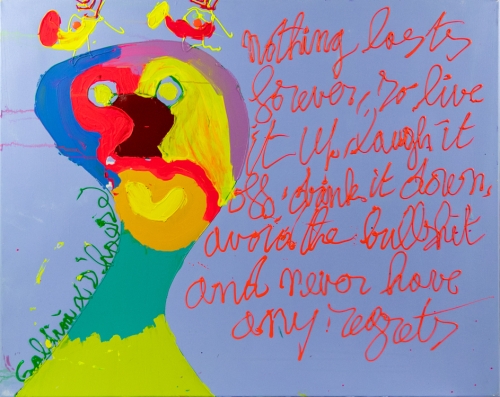 nothing lasts
forever, so live
it up, laugh it
off, drink it down,
avoid the bullshit
and never have
any regrets